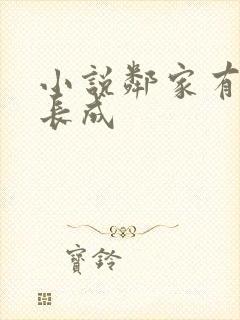 小說鄰家有
長成
寶鈴